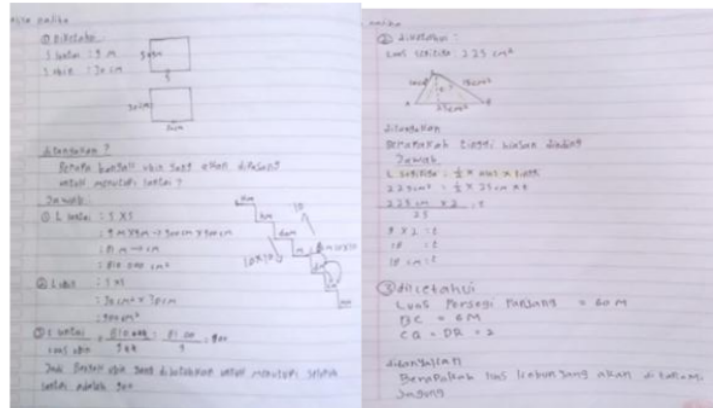 ① Diketahui
S lantai : 9 M
S ubin : 30 cm
9
30cm
30cm
ditanyakan ?
Berapa banyak ubin yang akan dipasang
untuk menutupi lantai ?
Jawab
① L lantai : S x S
: 9 M x 9 M → 900 cm x 900 cm
: 81 M → cm
: 810 000 cm²
② L ubin : S x S
: 30 cm x 30 cm
: 900 cm²
③ L lantai
Luas ubin
km
hm
dam
m
Jadi Banyak ubin yang dibutuhkan untuk menutupi seluruh
lantai adalah 900
② diketahui :
Luas segitiga : 225 cm²
A
B
25cm
ditanyakan
Berapakah tinggi hiasan dinding
Jawab
L segitiga : ½ x alas x tinggi
225cm² : ½ x 25cm x t
225 cm x 2 : t
25
9 x 2 : t
18 : t
18 cm : t
③ diketahui
Luas Persegi Panjang = 60 M
BC = 6M
CQ = DR = 2
ditanyakan
Berapakah luas kebun yang akan di tanami
Jagung